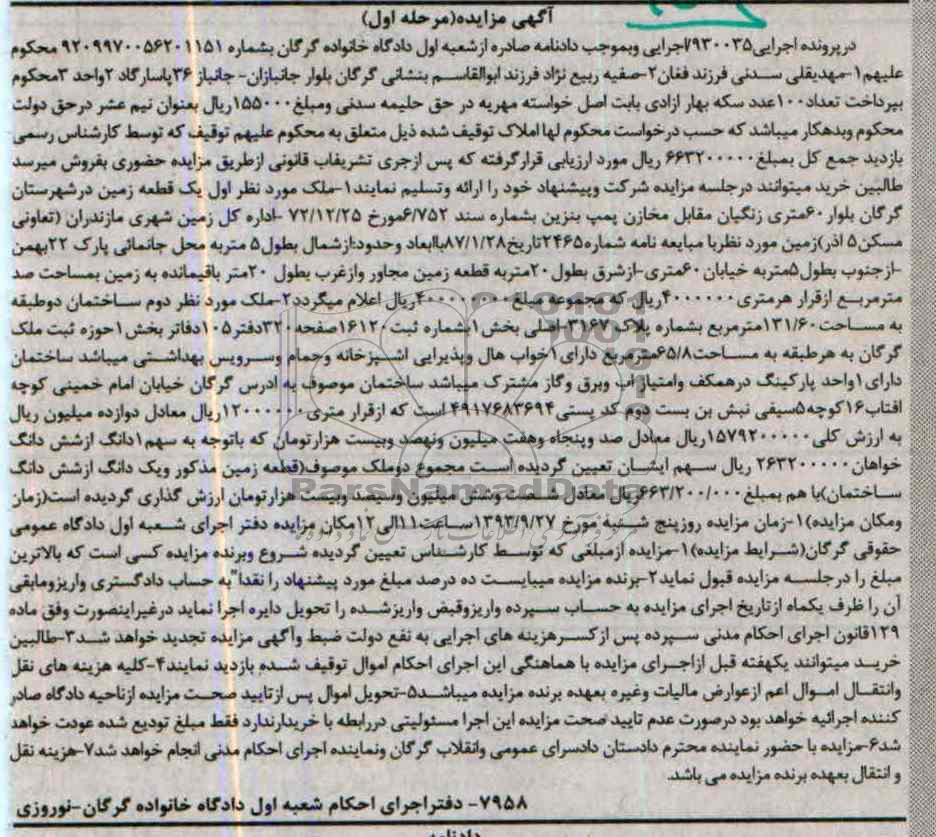 آگهی مزایده(مرحله اول)
درپرونده اجرایی۹۳۰۰۳۵/اجرایی وبموجب دادنامه صادره ازشعبه اول دادگاه خانواده گرگان بشماره ۹۲۰۹۹۷۰۰۵۶۲۰۱۱۵۱ محکوم
علیهم۱-مهدیقلی سدنی فرزند فغان۲-صفیه ربیع نژاد فرزند ابوالقاسم بنشانی گرگان بلوار جانبازان- جانباز ۳۶پاسارگاد ۲واحد ۳محکوم
بپرداخت تعداد۱۰۰عدد سکه بهار ازادی بابت اصل خواسته مهریه در حق حلیمه سدنی ومبلغ۱۵۵۰۰۰ریال بعنوان نیم عشر درحق دولت
محکوم وبدهکار میباشد که حسب درخواست محکوم لها املاک توقیف شده ذیل متعلق به محکوم علیهم توقیف که توسط کارشناس رسمی
بازدید جمع کل بمبلغ۶۶۳۲۰۰۰۰۰ ریال مورد ارزیابی قرارگرفته که پس ازجری تشریفات قانونی ازطریق مزایده حضوری بفروش میرسد
طالبین خرید میتوانند درجلسه مزایده شرکت وپیشنهاد خود را ارائه وتسلیم نمایند۱-ملک مورد نظر اول یک قطعه زمین درشهرستان
گرگان بلوار۶۰متری زنگیان مقابل مخازن پمپ بنزین بشماره سند ۶/۷۵۲مورخ ۷۲/۱۲/۲۵ -اداره کل زمین شهری مازندران (تعاونی
مسکن۵ اذر)زمین مورد نظربا مبایعه نامه شماره۲۴۶۵تاریخ۸۷/۱/۲۸باابعاد وحدود:ازشمال بطول۵ متربه محل جانمائی پارک ۲۲بهمن
-ازجنوب بطول۵متربه خیابان۶۰متری-ازشرق بطول۲۰متربه قطعه زمین مجاور وازغرب بطول ۲۰متر باقیمانده به زمین بمساحت صد
مترمربع ازقرار هرمتری۴۰۰۰۰۰۰ریال که مجموعه مبلغ۴۰۰۰۰۰۰۰۰ریال اعلام میگردد۲-ملک مورد نظر دوم ساختمان دوطبقه
به مساحت۱۳۱/۶۰مترمربع بشماره پلاک ۳۱۶۷-اصلی بخش۱بشماره ثبت۱۶۱۲۰صفحه۳۲۰دفتر۱۰۵دفاتر بخش۱حوزه ثبت ملک
گرگان به هرطبقه به مساحت۶۵/۸مترمربع دارای۱خواب هال وپذیرایی اشپزخانه وحمام وسرویس بهداشتی میباشد ساختمان
دارای۱واحد پارکینگ درهمکف وامتیاز اب وبرق وگاز مشترک میباشد ساختمان موصوف به ادرس گرگان خیابان امام خمینی کوچه
افتاب۱۶کوچه۵سیفی نبش بن بست دوم کد پستی۴۹۱۷۶۸۳۶۹۴ است که ازقرار متری۱۲۰۰۰۰۰۰ریال معادل دوازده میلیون ریال
به ارزش کلی۱۵۷۹۲۰۰۰۰۰ریال معادل صد وپنجاه وهفت میلیون ونهصد وبیست هزارتومان که باتوجه به سهم۱دانگ ازشش دانگ
خواهان۲۶۳۲۰۰۰۰۰ ریال سهم ایشان تعیین گردیده است مجموع دوملک موصوف(قطعه زمین مذکور ویک دانگ ازشش دانگ
ساختمان)با هم بمبلغ۶۶۳/۲۰۰/۰۰۰ریال معادل شصت وشش میلیون وسیصد وبیست هزارتومان ارزش گذاری گردیده است(زمان
ومکان مزایده)۱-زمان مزایده روزپنج شنبه مورخ ۱۳۹۳/۹/۲۷ساعت۱۱الی۱۲مکان مزایده دفتر اجرای شعبه اول دادگاه عمومی
حقوقی گرگان(شرایط مزایده)۱-مزایده ازمبلغی که توسط کارشناس تعیین گردیده شروع وبرنده مزایده کسی است که بالاترین
مبلغ را درجلسه مزایده قبول نماید۲-برنده مزایده میبایست ده درصد مبلغ مورد پیشنهاد را نقدا"به حساب دادگستری واریزومابقی
آن را ظرف یکماه ازتاریخ اجرای مزایده به حساب سپرده واریزوقبض واریزشده را تحویل دایره اجرا نماید درغیراینصورت وفق ماده
۱۲۹قانون اجرای احکام مدنی سپرده پس ازکسرهزینه های اجرایی به نفع دولت ضبط وآگهی مزایده تجدید خواهد شد۳-طالبین
خرید میتوانند یکهفته قبل ازاجرای مزایده با هماهنگی این اجرای احکام اموال توقیف شده بازدید نمایند۴-کلیه هزینه های نقل
وانتقال اموال اعم ازعوارض مالیات وغیره بعهده برنده مزایده میباشد۵-تحویل اموال پس ازتایید صحت مزایده ازناحیه دادگاه صادر
کننده اجرائیه خواهد بود درصورت عدم تایید صحت مزایده این اجرا مسئولیتی دررابطه با خریدارندارد فقط مبلغ تودیع شده عودت خواهد
شد۶-مزایده با حضور نماینده محترم دادستان دادسرای عمومی وانقلاب گرگان ونماینده اجرای احکام مدنی انجام خواهد شد۷-هزینه نقل
و انتقال بعهده برنده مزایده می باشد.
۷۹۵۸- دفتراجرای احکام شعبه اول دادگاه خانواده گرگان-نوروزی
ParsNamadData